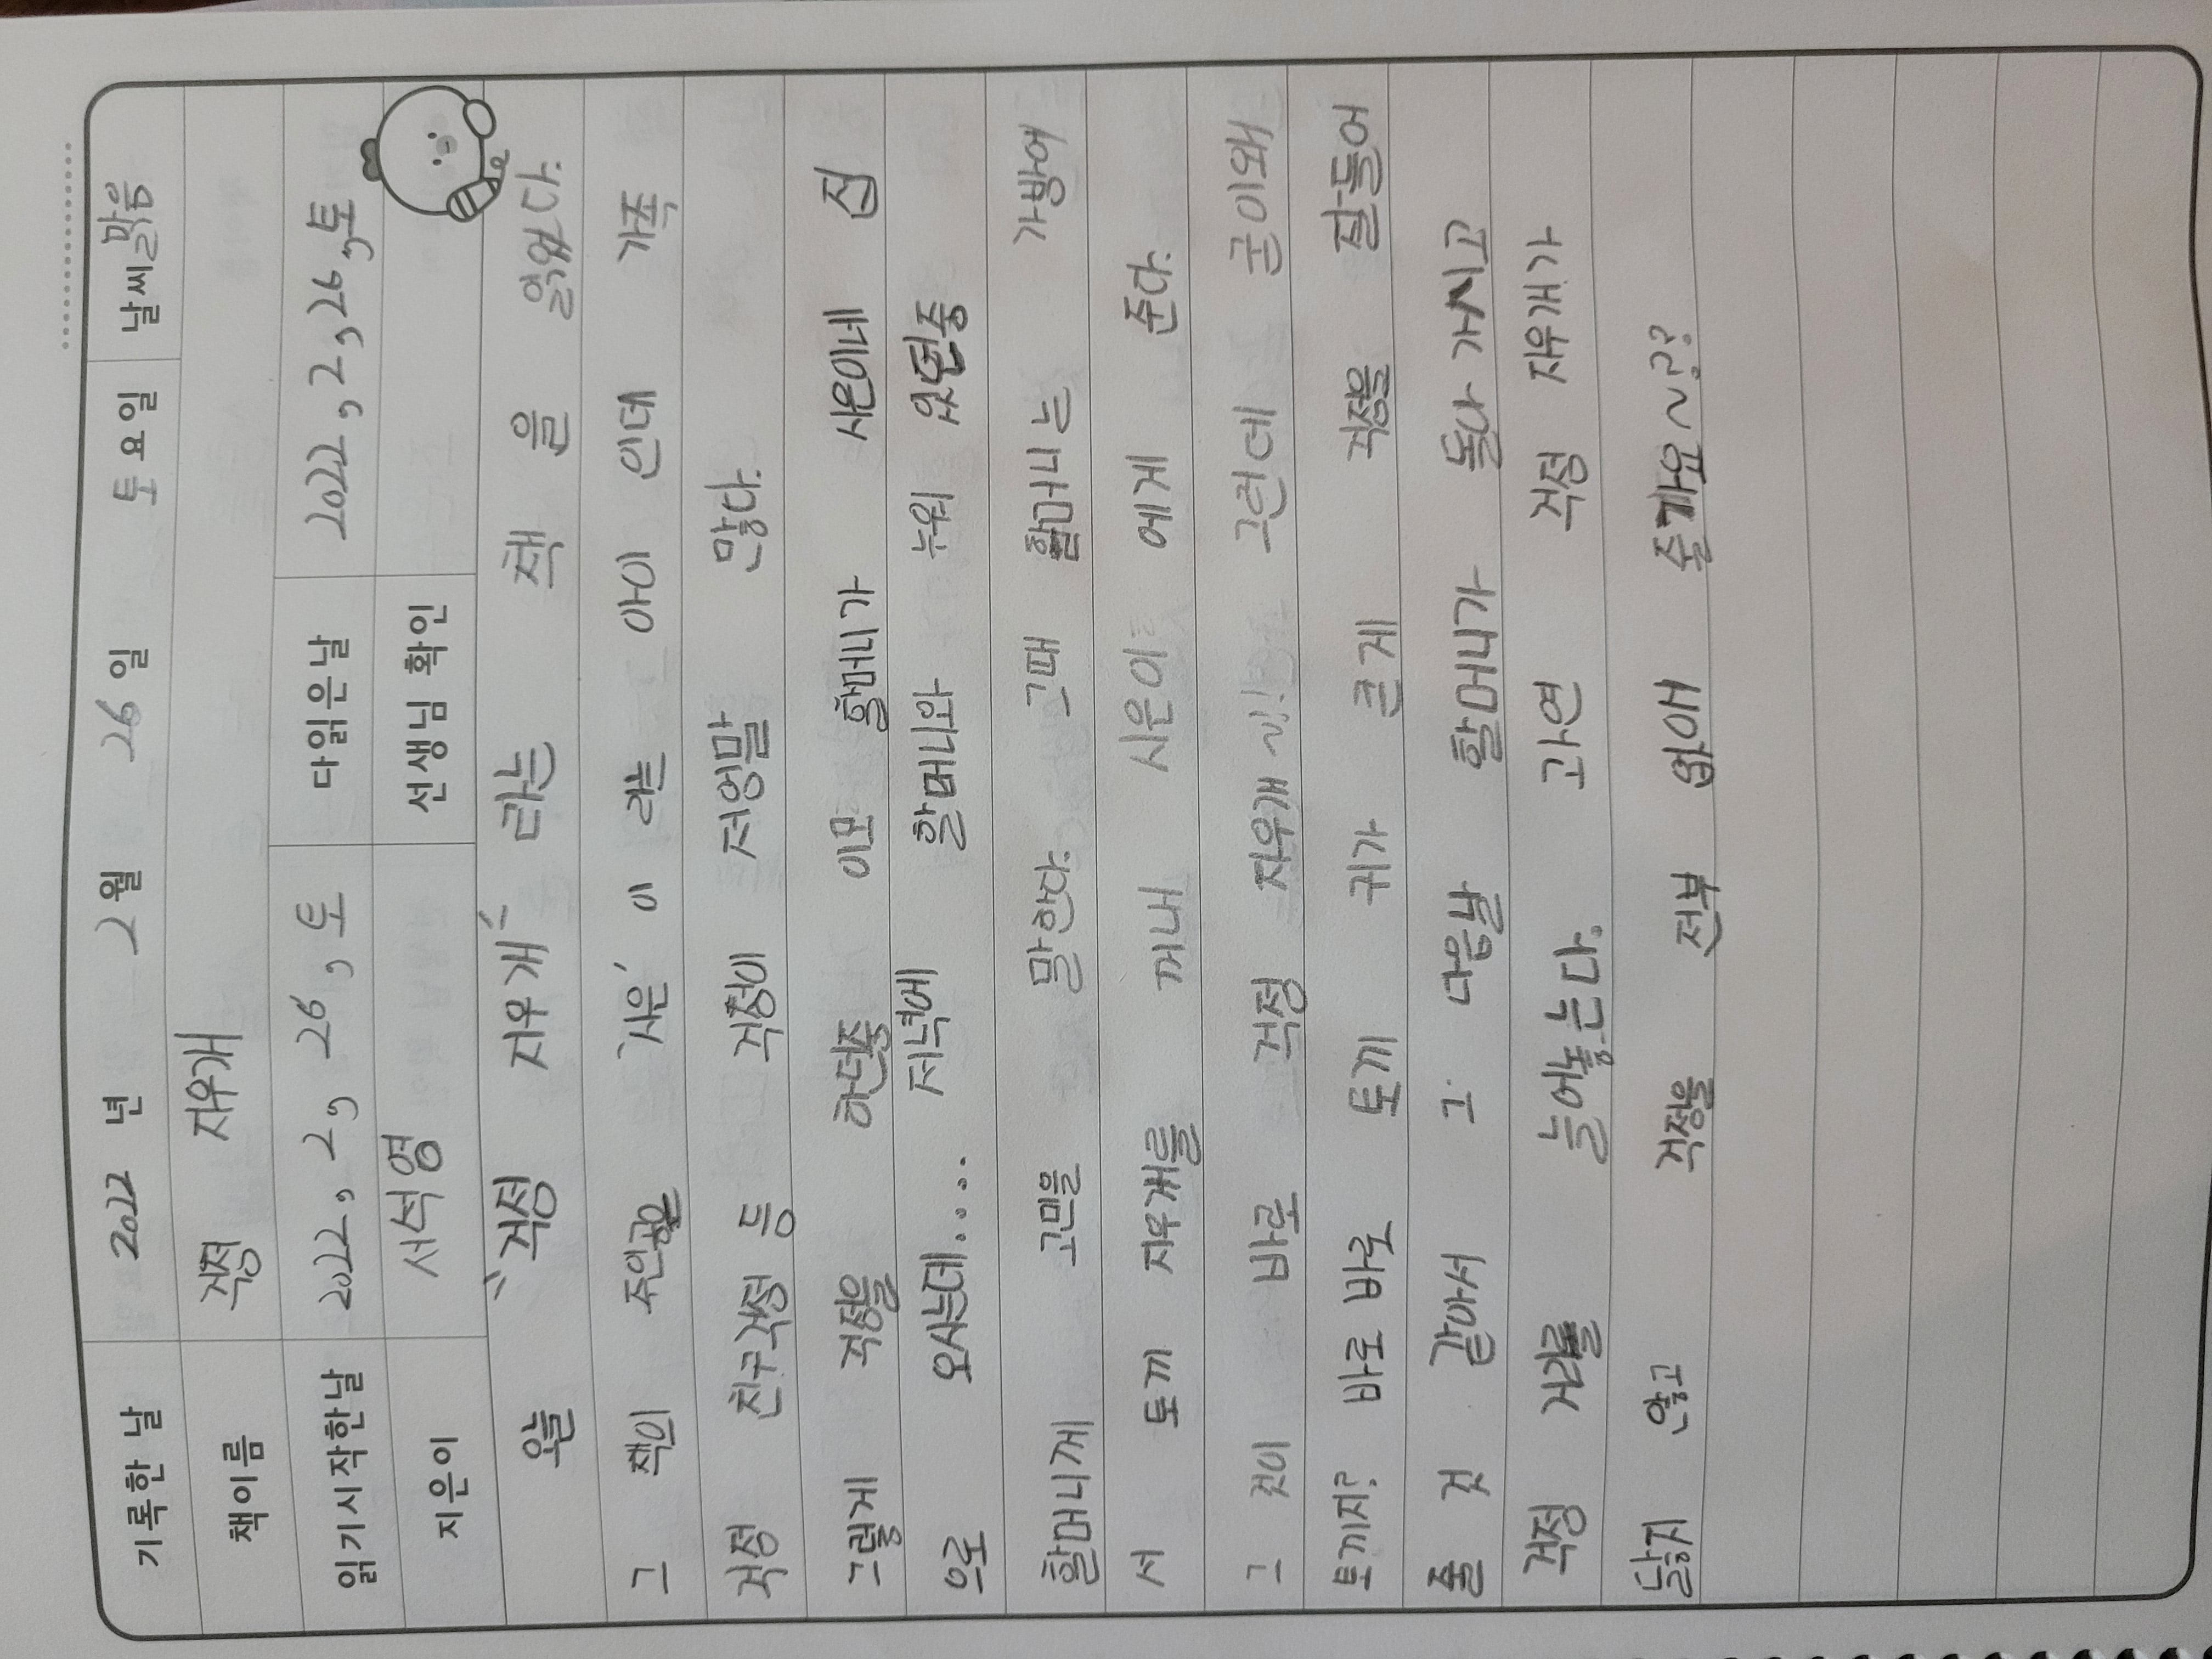 기록한 날 2022 년 2 월 26 일 토 요일 날씨 맑음
책이름 걱정 지우개
읽기시작한날 2022, 2, 26, 토 다읽은날 2022, 2, 26, 토
지은이 서석영 선생님 확인
오늘 "걱정 지우개" 라는 책 을 읽었다.
그 책의 주인공은 '시은' 이 라는 아이 인데 가족
걱정 친구걱정 등 걱정이 저엉말 많다.
그렇게 걱정을 하던중 이모 할머니가 시은이네 집
으로 오시는데.... 저녁에 할머니와 누워 있던중
할머니께 고민을 말한다. 그때 할머니는 가방에
서 토끼 지우개를 꺼내 시은이 에게 준다.
그 것이 바로 걱정 지우개~!! 그런데 굳이왜
토끼지? 바로 바로 토끼 귀가 큰게 걱정을 잘들어
줄 것 같아서 그 다음날 할머니가 돌아 가시고
걱정 거리를 늘어놓는다. 과연 걱정 지우개가
닳지 않고 걱정을 전부 없애 줄까요~???